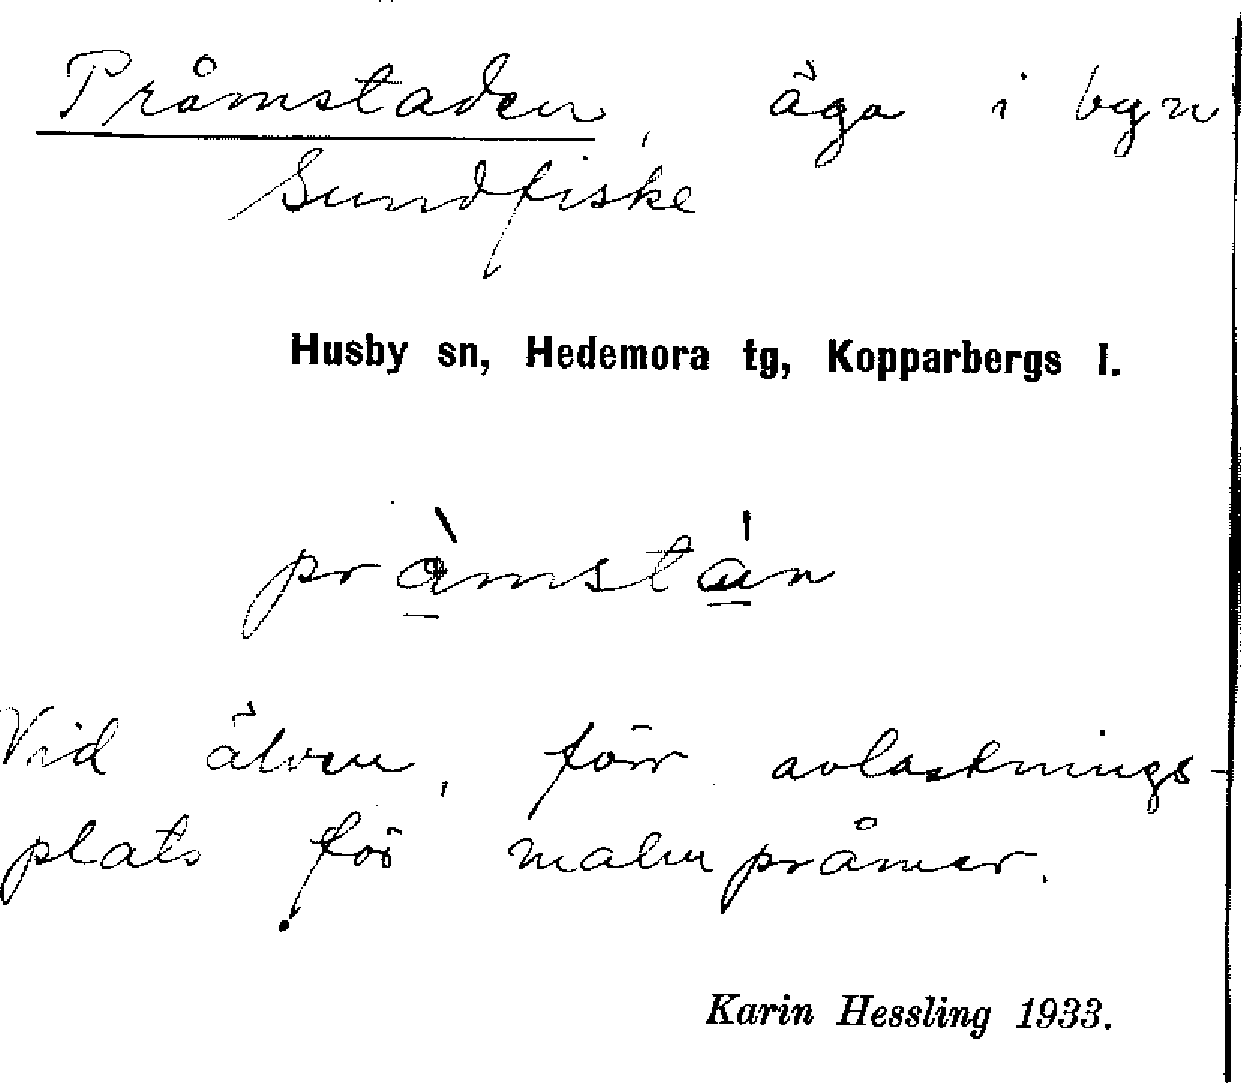 Pråmstaden, äga i byn
Sundfiske
Husby sn, Hedemora tg, Kopparbergs l.
pràmstán
Vid älven, förr avlastnings-
plats för malmpråmar.
Karin Hessling 1933.